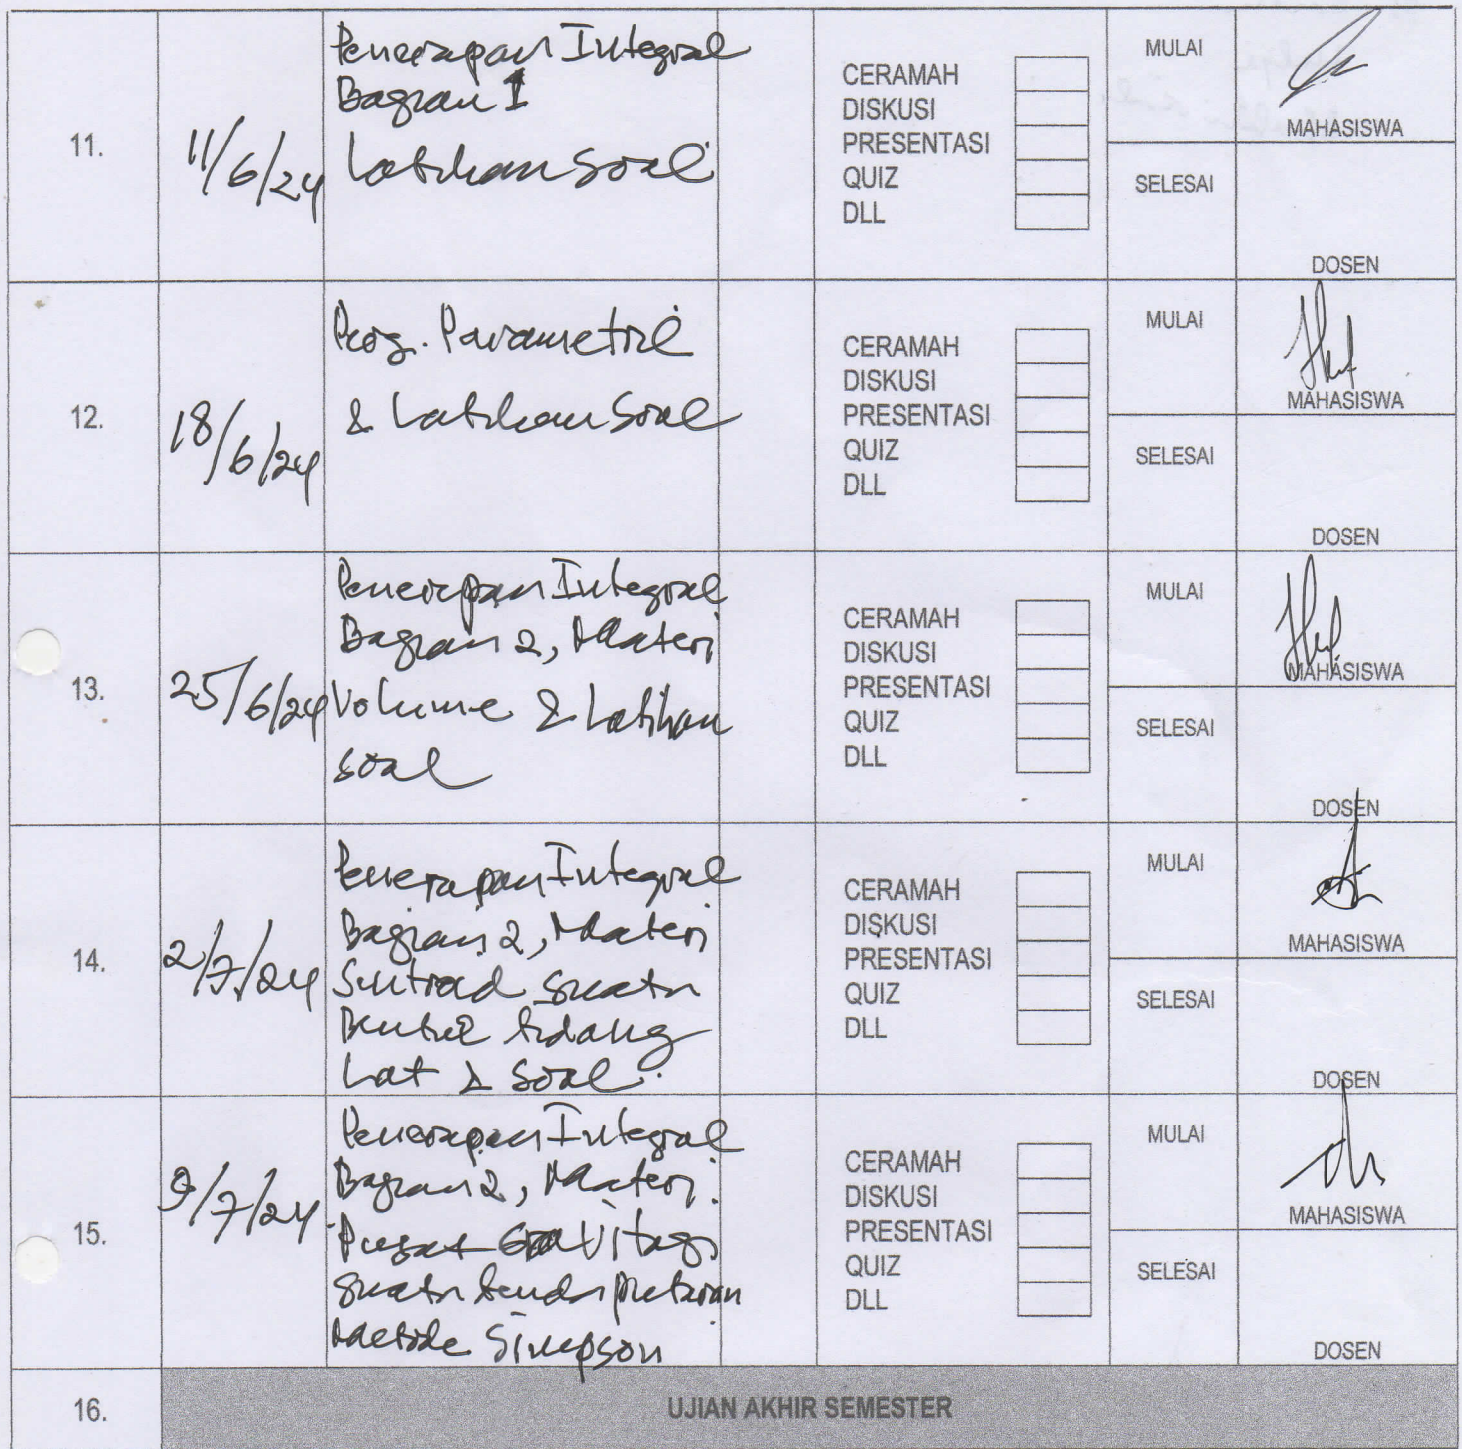 11.
11/6/24
Penerapan Integral
Bagian 1
Latihan Soal
CERAMAH
DISKUSI
PRESENTASI
QUIZ
DLL
MULAI
MAHASISWA
SELESAI
DOSEN
12.
18/6/24
Prog. Parametrik
& Latihan Soal
CERAMAH
DISKUSI
PRESENTASI
QUIZ
DLL
MULAI
MAHASISWA
SELESAI
DOSEN
13.
25/6/24
Penerapan Integral
Bagian 2, Materi
Volume & Latihan
Soal
CERAMAH
DISKUSI
PRESENTASI
QUIZ
DLL
MULAI
MAHASISWA
SELESAI
DOSEN
14.
2/7/24
Penerapan Integral
Bagian 2, Materi
Sentroid suatu
Bentuk bidang
Lat & Soal.
CERAMAH
DISKUSI
PRESENTASI
QUIZ
DLL
MULAI
MAHASISWA
SELESAI
DOSEN
15.
9/7/24
Penerapan Integral
Bagian 2, Materi
Pusat Gravitasi
suatu benda putaran
Metode Simpson
CERAMAH
DISKUSI
PRESENTASI
QUIZ
DLL
MULAI
MAHASISWA
SELESAI
DOSEN
16.
UJIAN AKHIR SEMESTER